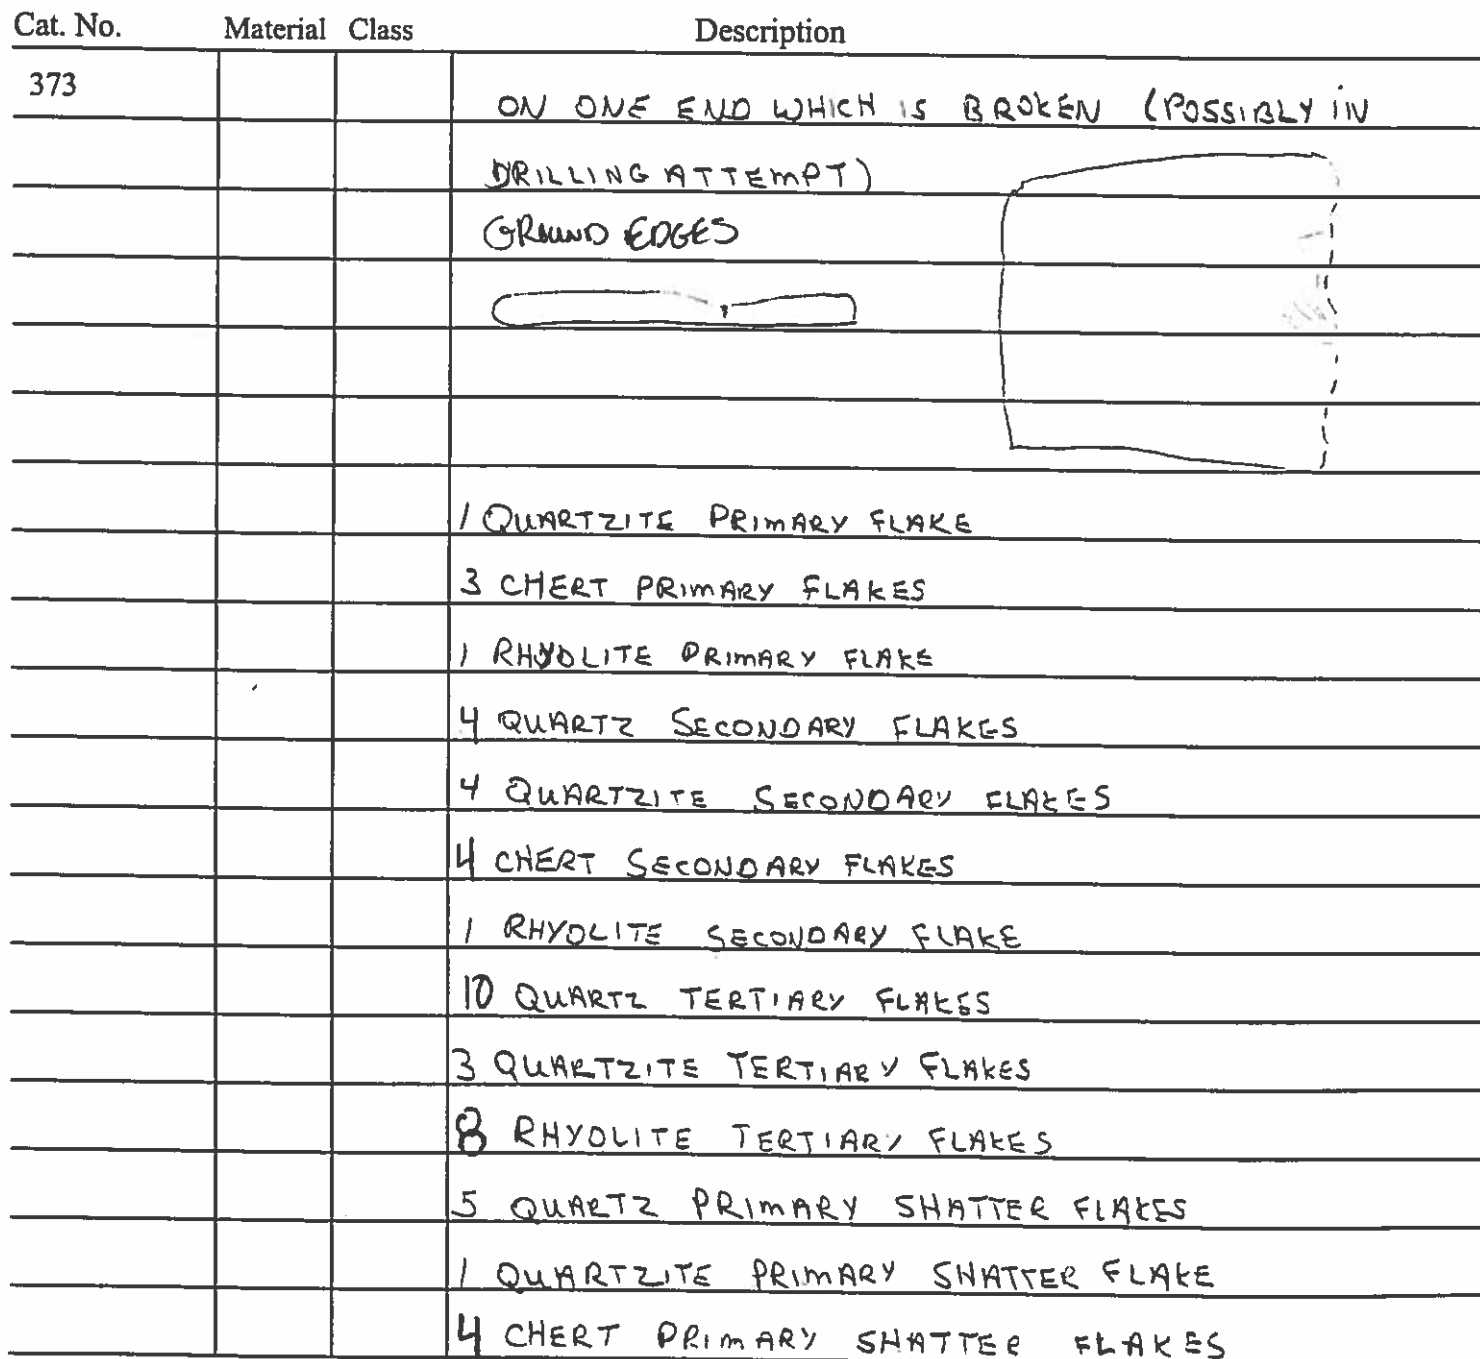 Cat. No. Material Class Description
373
ON ONE END WHICH IS BROKEN (POSSIBLY IN
DRILLING ATTEMPT)
GROUND EDGES
1 QUARTZITE PRIMARY FLAKE
3 CHERT PRIMARY FLAKES
1 RHYOLITE PRIMARY FLAKE
4 QUARTZ SECONDARY FLAKES
4 QUARTZITE SECONDARY FLAKES
4 CHERT SECONDARY FLAKES
1 RHYOLITE SECONDARY FLAKE
10 QUARTZ TERTIARY FLAKES
3 QUARTZITE TERTIARY FLAKES
8 RHYOLITE TERTIARY FLAKES
5 QUARTZ PRIMARY SHATTER FLAKES
1 QUARTZITE PRIMARY SHATTER FLAKE
4 CHERT PRIMARY SHATTER FLAKES